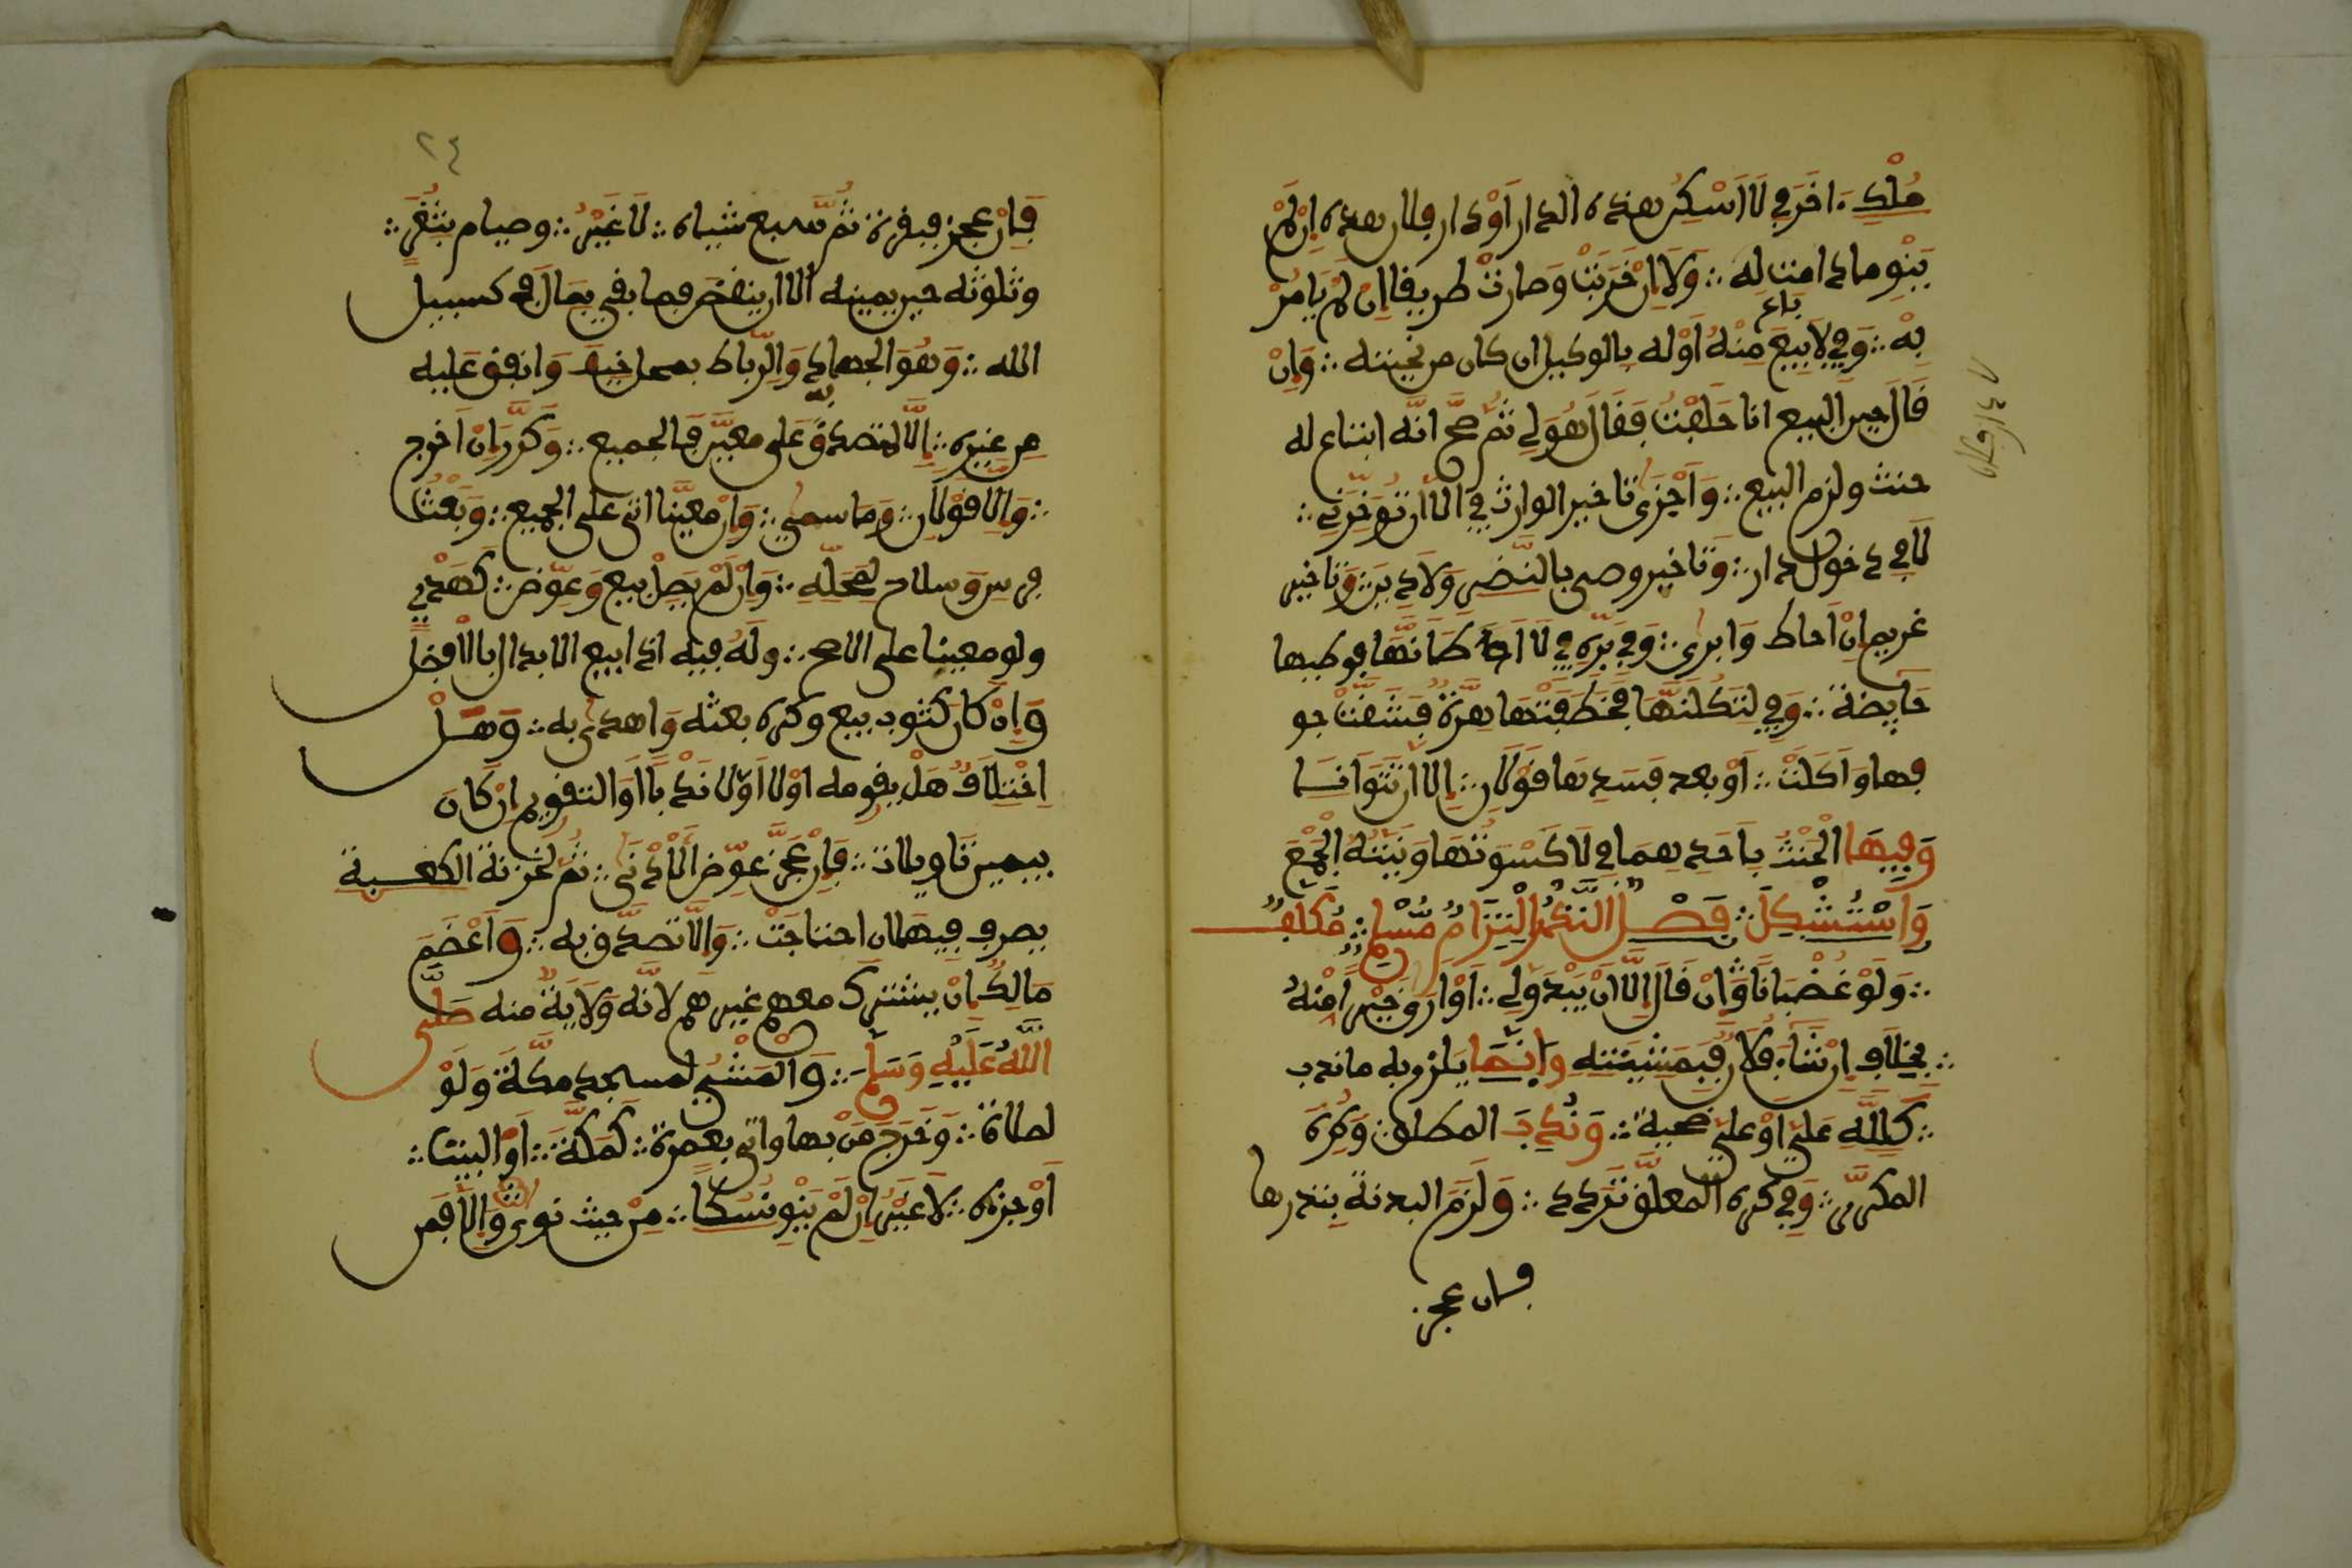 مُلْكِ اخَرَ فِي لَا أَسْكُنُ هذه الدار أَوْ دار فلان هذه إن لم
يَنْوِ ما دامت له ؞ وَلَا إِنْ خَرِبَتْ وَصَارَتْ طريقا إِنْ لم يَامُرْ
بِهْ ؞ وَفِي لَا بَاعَ
يبيع مِنْهُ أَوْ له بالوكيل ان كان من نحيته ؞ وَإِنْ
قَالَ حين البيع انا حَلَفْتُ فَقَالَ هُوَ لِي ثُمَّ صَحَّ أنَّه ابتاع له
حنث ولزم البيع ؞ وَأَجْزَى تاخير الوارث في الا أن تُوَخِّرَنِي ؞
لَا فِي دخول دار ؞ وَتاخير وصي بالنَّضَرِ وَلَا دين ؞ وَتاخير
غريم إِنْ أحاط وَابرى ؞ وَفِي بَرِّهِ فِي لَا أطَانَّهَا فوطيها
حَايِضَة ؞ وَفِي لتَكُلَنَّهَا فَخَطَفَتْهَا هِرَّةٌ فَشَقَّتْ جو
فها وَأَكَلَتْ ؞ أَوْ بعد فَسَدِهَا قَوْلَانِ ؞ إلا أن تَتَوَانَا
وَفِيهَا الْحِنْثُ بِأَحَدِهِمَا فِي لَا كَسَوْتُهَا وَنِيَّتُهُ الْجَمْعُ
وَاسْتُشْكِلَ ؞ فَصْل النَّذْرُ الْتِزَامُ مُسْلِمٍ ؞ مُكَلَّفٍ
؞ وَلَوْ غَضْبَانًا وَّإِنْ قَالَ إِلَّا أَنْ يَبْدُوَ لِي ؞ أَوْ أرى خَيْراً مِّنْهُ
؞ بِخِلَافِ إِنْ شَاءَ فُلَانٌ فَبِمَشِيئَتِهِ وَإِنَّمَا يَلزم به ما ندب
؞ كَلِلَّهِ عَلَيَّ أَوْ عَلَيَّ ضحية ؞ وَنُدِبَ المطلق ؞ وَكُرِهَ
المكرَّر ؞ وَفِي كُرْهِ المعلق تَرَدُّد ؞ وَلَزِمَ البدنة بنذرها
فإن عجز
٧ ٤ اوراق
٢٤
فَإِنْ عجز فبقرة ثُمَّ سبع شياه ؞ لَا غَيْرُ ؞ وصيام بِثَغْرٍ ؞
وثلوثه حين يمينه الا ان ينقص فما بقي بِمَالِي في كسبيل
الله ؞ وَهُوَ الجهاد وَالرِّباط بمحل خيف وَانفق عليه
من غيره ؞ إلَّا لمتصدق بِهِ عَلى معيَّن فالجميع ؞ وَكَرَّرَ إن أخرج
؞ وَإِلَّا قَوْلَانِ ؞ وَما سمى ؞ وَإِنْ معينا اتى على الجميع ؞ وَبَعْثُ
فرس وَسلاح لمحله ؞ وَإِنْ لَمْ يصل بيع وَعُوِّض ؞ كَهَدْيٍ
ولو معيبا على الاصح ؞ وله فيه اذا بيع الابدال بالافضل
وَإِنْ كان كثوب بيع وكره بعثه وَاهدى به ؞ وَهَلْ
اخْتلَافٌ هَلْ يقومه اولا أولا نَدْبًا أو التقويم إن كَانَ
بيمين تَاويلات ؞ فَإِنْ عَجَزَ عُوِّضَ الأَدْنَى ؞ ثُمَّ لخزنة الكعبة
يصرف فيها ان احتاجت ؞ وَإِلَّا تصدَّق به ؞ وَأَعْضَمَ
مَالِكٌ إنْ يشترك معهم غيرهم لانّه وَلَايَةٌ منه صَلَّى
اللَّهُ عَلَيْهِ وَسَلَّمَ ؞ وَالْمَشْيُ لمسجد مكَّةَ وَلَوْ
لصلاة ؞ وَخَرَجَ مَن بها واتى بعمرة ؞ كَمَكَّةَ ؞ أَوِ البيت ؞
أَوْ جزه ؞ لَا غَيْرُ إنْ لَمْ يَنْوِ نُسُكًا ؞ مِنْ حيث نوى وَإِلَّا فَمن